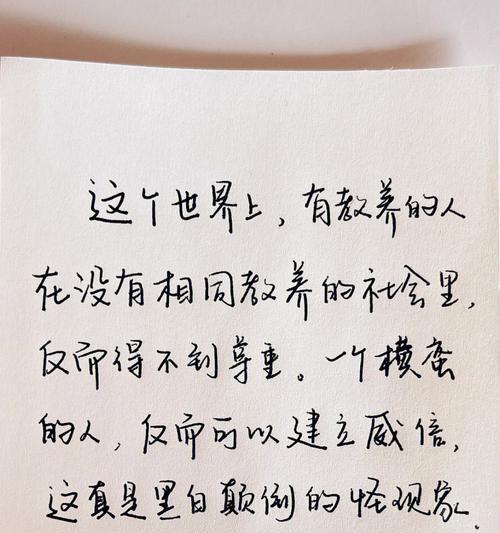 这个世界上，有教养的人
在没有相同教养的社会里，
反而得不到尊重。一个横蛮
的人，反而可以建立威信，
这真是黑白颠倒的怪现象．